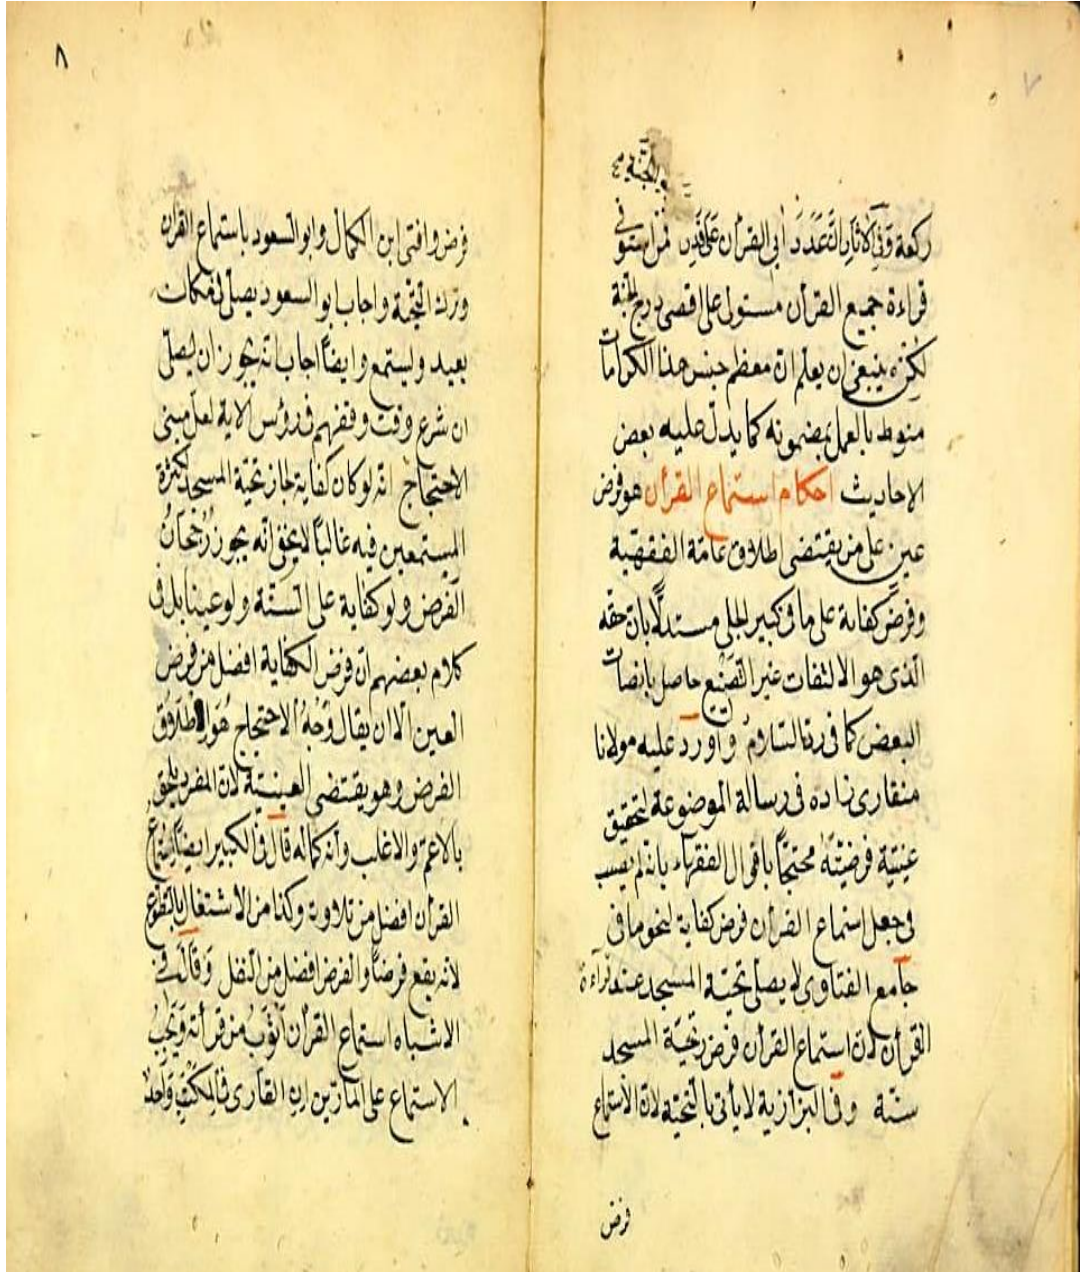 ٧
في الجنة
ركعة وفي الآثار ان عدد آي القرآن على قدر فمن استوفى
قراءة جميع القرآن مستولى على اقصى درج الجنة
لكنه ينبغي ان يعلم ان معظم جنس هذا الكرامات
منوط بالعمل بمضمونه كما يدل عليه بعض
الاحاديث احكام استماع القرآن هو فرض
عين على من يقتضي اطلاق عامة الفقهية
وفرض كفاية على ما في كبير الحلبي مستدلا بان حقه
الذي هو الالتفات غير التضييع حاصل بانصات
البعض كما في رد السلام واورد عليه مولانا
منقاري زاده في رسالة الموضوعة لتحقيق
عينية فرضيته محتجا باقوال الفقهاء بانه لم يصب
في جعل استماع القرآن فرض كفاية لنحو ما في
جامع الفتاوى لا يصلي تحية المسجد عند قراءة
القرآن لان استماع القرآن فرض وتحية المسجد
سنة وفي البزازية لا يأتي بالتحية لان الاستماع
فرض
٨
فرض وافتى ابن الكمال وابو السعود باستماع القرآن
وترك التحية واجاب ابو السعود يصلي في مكان
بعيد وليستمع وايضا اجاب انه يجوز ان يصلي
ان شرع وقت وقفهم في رؤس الاية لعل مبنى
الاحتجاج انه لو كان كفاية جاز تحية المسجد لكثرة
المستمعين فيه غالبا لا يخفى انه يجوز رجحان
الفرض ولو كفاية على السنة ولو عينا بل في
كلام بعضهم ان فرض الكفاية افضل من فرض
العين الا ان يقال وجه الاحتجاج هو اطلاق
الفرض وهو يقتضي العينية لان المفرد يلحق
بالاعم والاغلب وانه كماله قال في الكبير ايضا استماع
القرآن افضل من تلاوته وكذا من الاشتغال بالتطوع
لانه يقع فرضا والفرض افضل من النفل وقال في
الاشباه استماع القرآن اثوب من قرأته ويجب
الاستماع على المارين ان القارى في المكتب واحدا